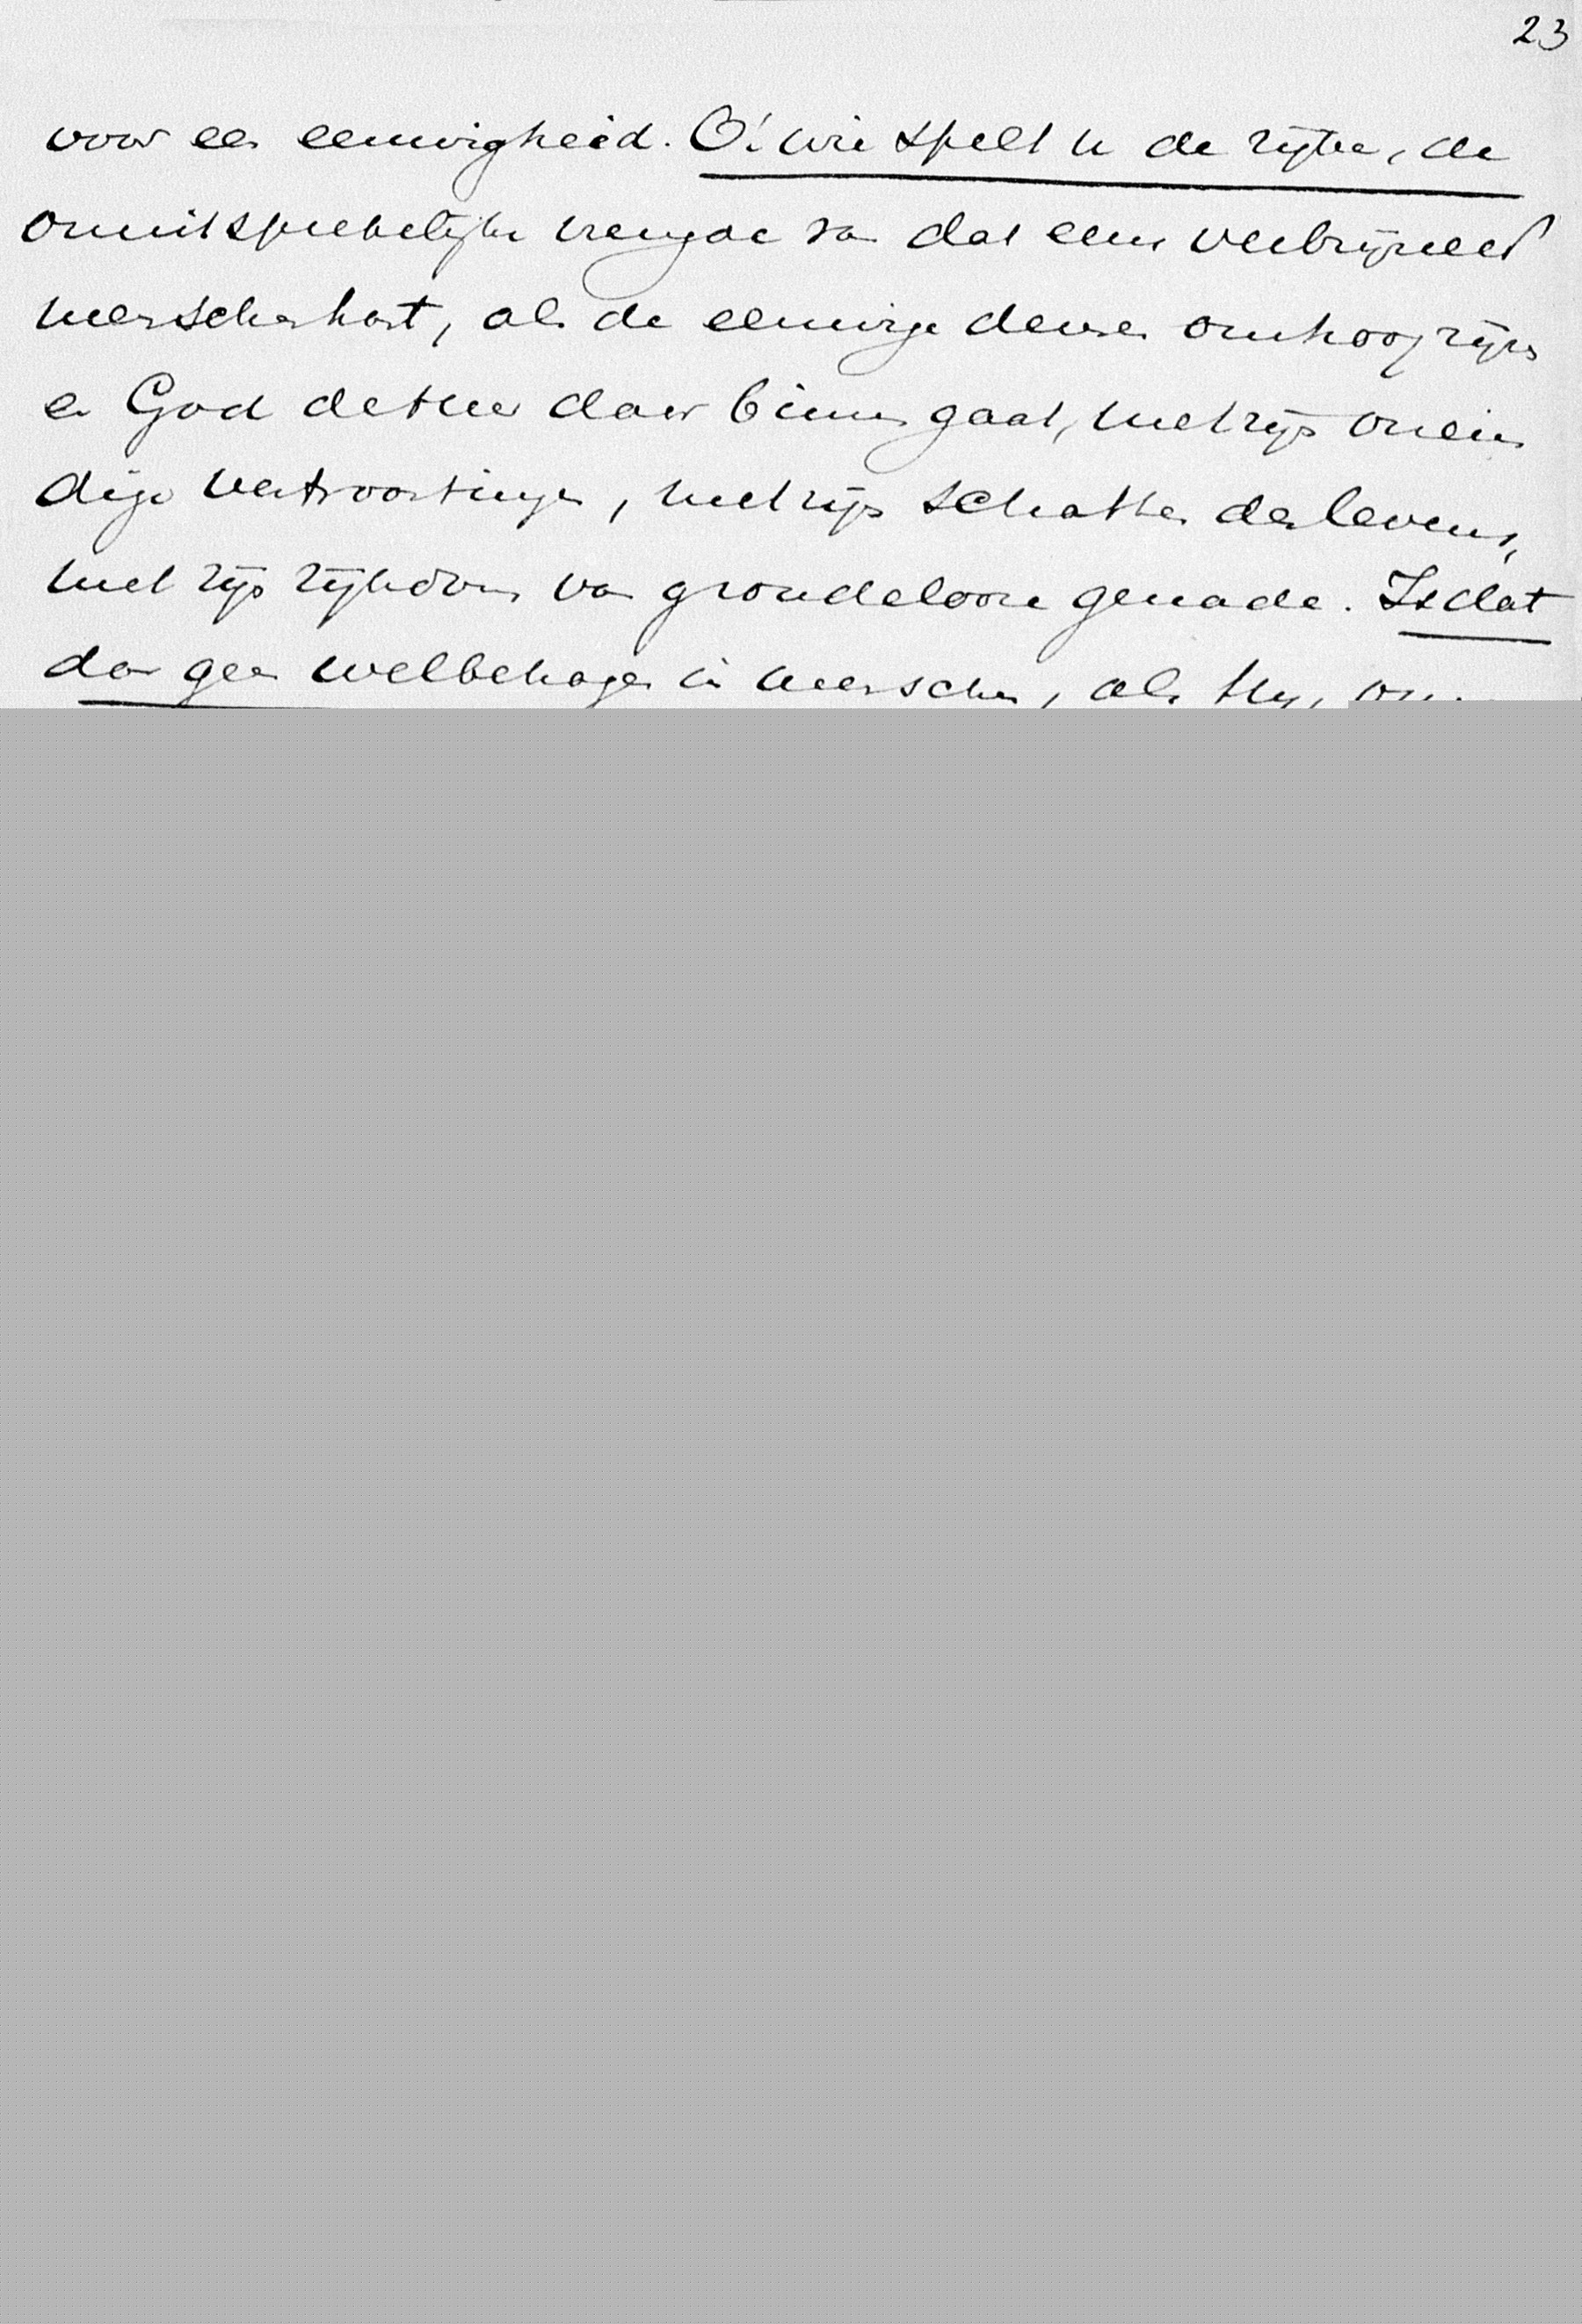 23
voor een eeuwigheid. O! wie spelt u de rijke, de
onuitsprekelijke vreugde van dat eens verbrijzeld
menschenhart, als de eeuwige deuren omhoog rijzen
en God de Heer daar binnen gaat, met zijn onein
dige vertroostingen, met zijn schatten des levens,
met zijn rijkdom van grondelooze genade. Is dat
dan geen welbehagen in menschen, als Hij,